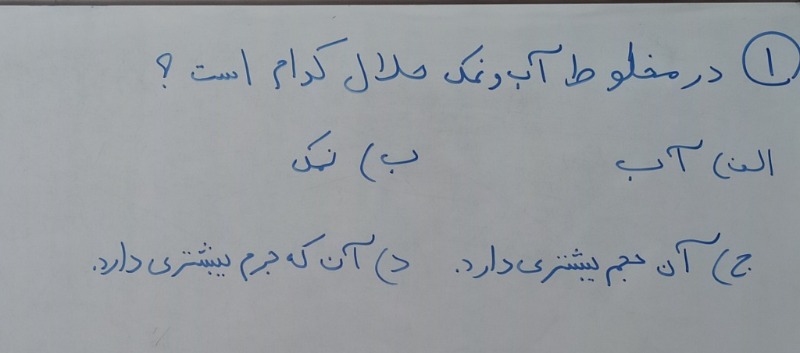 ۱ در مخلوط آب و نمک حلال کدام است ؟
الف) آب ب) نمک
ج) آن حجم بیشتری دارد. د) آن که جرم بیشتری دارد.